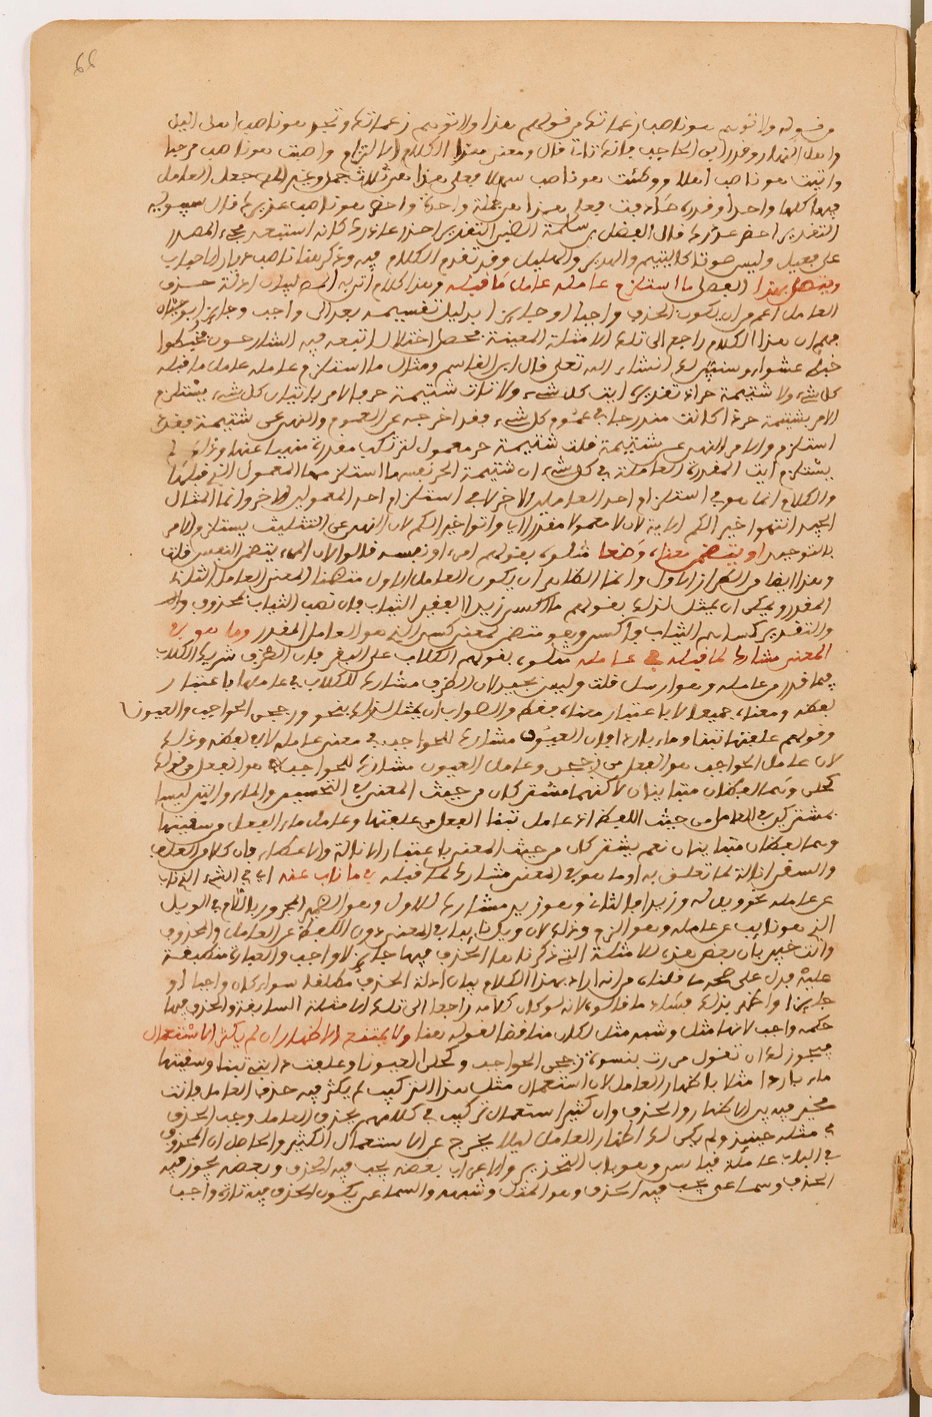 66
من قوله ولا تتوهم هو ناصب زعماتك من قولهم هذا ولا تتوهم زعماتك وتجو هو ناصب اهلك الليل
واهلك النهار وقدر ابن الحاجب فانه ثالثة قال ومعنى هذا الكلام الالتزام واصبت هو ناصب مرحبا
واتيت هو ناصب اهلا ووطئت هو ناصب سهلا فعلى هذا هي ثلاث جمل وغير جعل العامل
فيها كلها واحدا وقدره صادفت فعلى هذا هي جملة واحدة واحضر هو ناصب عذيرك قال سيبويه
التقدير احضر عذرك قال المفضل بن سلمة الضبي التقدير احذر كانه استبعد مجيء المصدر
على فعيل وليس صوتا كالنئيم والهدير والصليل وقد تقدم الكلام فيه وذكر هنا ناصب ديار الاحباب
هذا الفصل ما استلزم عامله عامل ما قبله وهذا كلام لبيان ادلة حذف
العامل اعم من ان يكون الحذف واجبا او جايزا بدليل تقسيمه بعد الى واجب وجايز
ان هذا الكلام راجع الى تلك الامثلة المعينة محض اختلال تبعه فيه الشارحون فخبطوا
خبط عشواء وسننبه لك ان شاء الله تعلى قال ابن القاسم ومثال ما استلزم عامله عامل ما قبله
كل شيء ولا شتيمة حر اذ تقديره ايت كل شيء ولا تات شتيمة حر والامر باتيان كل شيء يستلزم
الامر بشتيمة حر اذ كانت مندرجة في عموم كل شيء فقد اخرجه عن العموم والنهي عن شتيمة فقد
استلزم والامر النهي عن شتيمة قلت شتيمة حر معمول لترتكب مقدرة منهيا عنها وذلك لم
يستلزم ايت المقدرة العاملة في كل شيء ان شتيمة الحر نفسها استلزمها المعمول الذي قبلها
والكلام انما هو في استلزام احد العاملين الاخر لا في استلزام احد المعمولين الاخر وانما المثال
الجيد انتهوا خيرا لكم الاية لان لا معمولا مقدر اي واتوا خيرا لكم لان النهي عن التثليث يستلزم الامر
بالتوحيد او يتضمن معناه وضعا مثلوه بقولهم امرءا ونفسه قالوا لان المرء يتضمن النفس قلت
وهذا ايضا من الطراز الاول وانما الكلام ان يكون العامل الاول متضمنا لمعنى العامل الثاني
المقدر ويمكن ان يمثل لذلك بقولهم ما اكسى زيدا الفقير الثياب فان نصب الثياب بمحذوف
والتقدير كساهم الثياب وما اكسى وهو متضمن لمعنى كسى الذي هو العامل المقدر وما هو في
المعنى مشارك لما قبله في عامله مثلوه بقولهم الكلاب على البقر فان الظرف شريك الكلاب
فيما قدر من عامله وهو ارسل قلت وليس بجيد لان الظرف مشارك للكلاب في عاملها باعتبار
لفظه ومعناه جميعا لا باعتبار معناه فقط والصواب ان يمثل لذلك بنحو وزججن الحواجب والعيونا
وقولهم علفتها تبنا وماء باردا فان العيون مشاركة للحواجب في معنى عامله لا في لفظه وذلك
لان عامل الحواجب هو الفعل من زجج وعامل العيون مشاركة للحواجب هو الفعل من قولك
كحلن وهما لفظان متباينان لاكنهما مشتركان من حيث المعنى في التحسين والماء والتبن ليسا
بمشتركين في العامل من حيث اللفظ اذ عامل تبنا الفعل من علفتها وعامل ماء الفعل وسقيتها
وهما لفظان متباينان نعم يشتركان من حيث المعنى باعتبار الانالة والاعطاء فان كلا من العلف
والسقي انالة لما تعلق به او ما هو في المعنى مشارك لما قبله في ما ناب عنه اي في الشيء الذي ناب
عن عامله نحو ويل له وزيدا فالثاني وهو زيد مشارك للاول وهو الضمير المجرور باللام في الويل
الذي هو نايب عن عامله وهو الزم وذلك لان ويل نايب في المعنى دون اللفظ عن العامل والمحذوف
وانت خبير بان بعض هذه الامثلة التي ذكرناها الحذف فيها جايز لا واجب والعبارة منطبقة
عليه فدل على صحة ما قلناه من انه اراد بهذا الكلام بيان ادلة الحذف مطلقا سواء كان واجبا او
جايزا واظهر بذلك فساد ما قالوه لانه لو كان كلامه راجعا الى تلك الامثلة السابقة والحذف فيها
حكمه واجب لانها مثل وشبه مثل لكان مناقضا لقوله هنا ولا يمتنع الاظهار ان لم يكثر الاستعمال
فيجوز لك ان تقول مررت بنسوة زججن الحواجب وكحلن العيونا وعلفت دابتي تبنا وسقيتها
ماء باردا مثلا باظهار العامل لان استعمال مثل هذا التركيب لم يكثر فيه حذف العامل فانت
مخير فيه بين الاظهار والحذف وان كثر استعمال تركيب في كلامهم بحذف العامل وجب الحذف
في مثله حينئذ ولم يكن لك اظهار العامل ليلا يخرج عن الاستعمال الكثير والحاصل ان المحذوف
في الباب عامله قياسي وهو باب التحذير والاغراء بعضه يجب فيه الحذف وبعضه يجوز فيه
الحذف وسماعي يجب فيه الحذف وهو المثل وشبهه والسماعي يكون الحذف فيه تارة واجبا